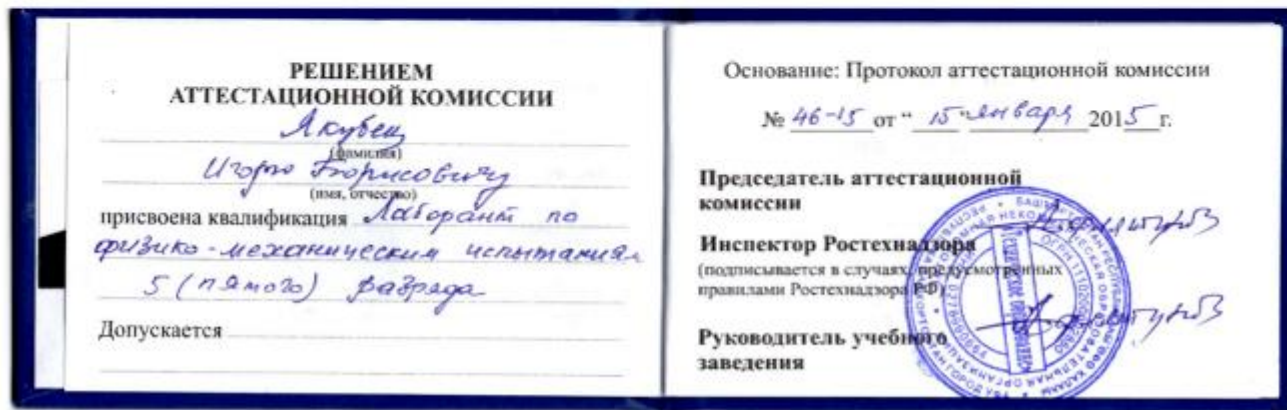 РЕШЕНИЕМ
АТТЕСТАЦИОННОЙ КОМИССИИ
Якубец
(фамилия)
Игорю Борисовичу
(имя, отчество)
присвоена квалификация Лаборант по
физико-механическим испытаниям
5 (пятого) разряда
Допускается
Основание: Протокол аттестационной комиссии
№ 46-15 от " 15 " января 2015 г.
Председатель аттестационной
комиссии
Инспектор Ростехнадзора
(подписывается в случаях, предусмотренных
правилами Ростехнадзора РФ)
Руководитель учебного
заведения